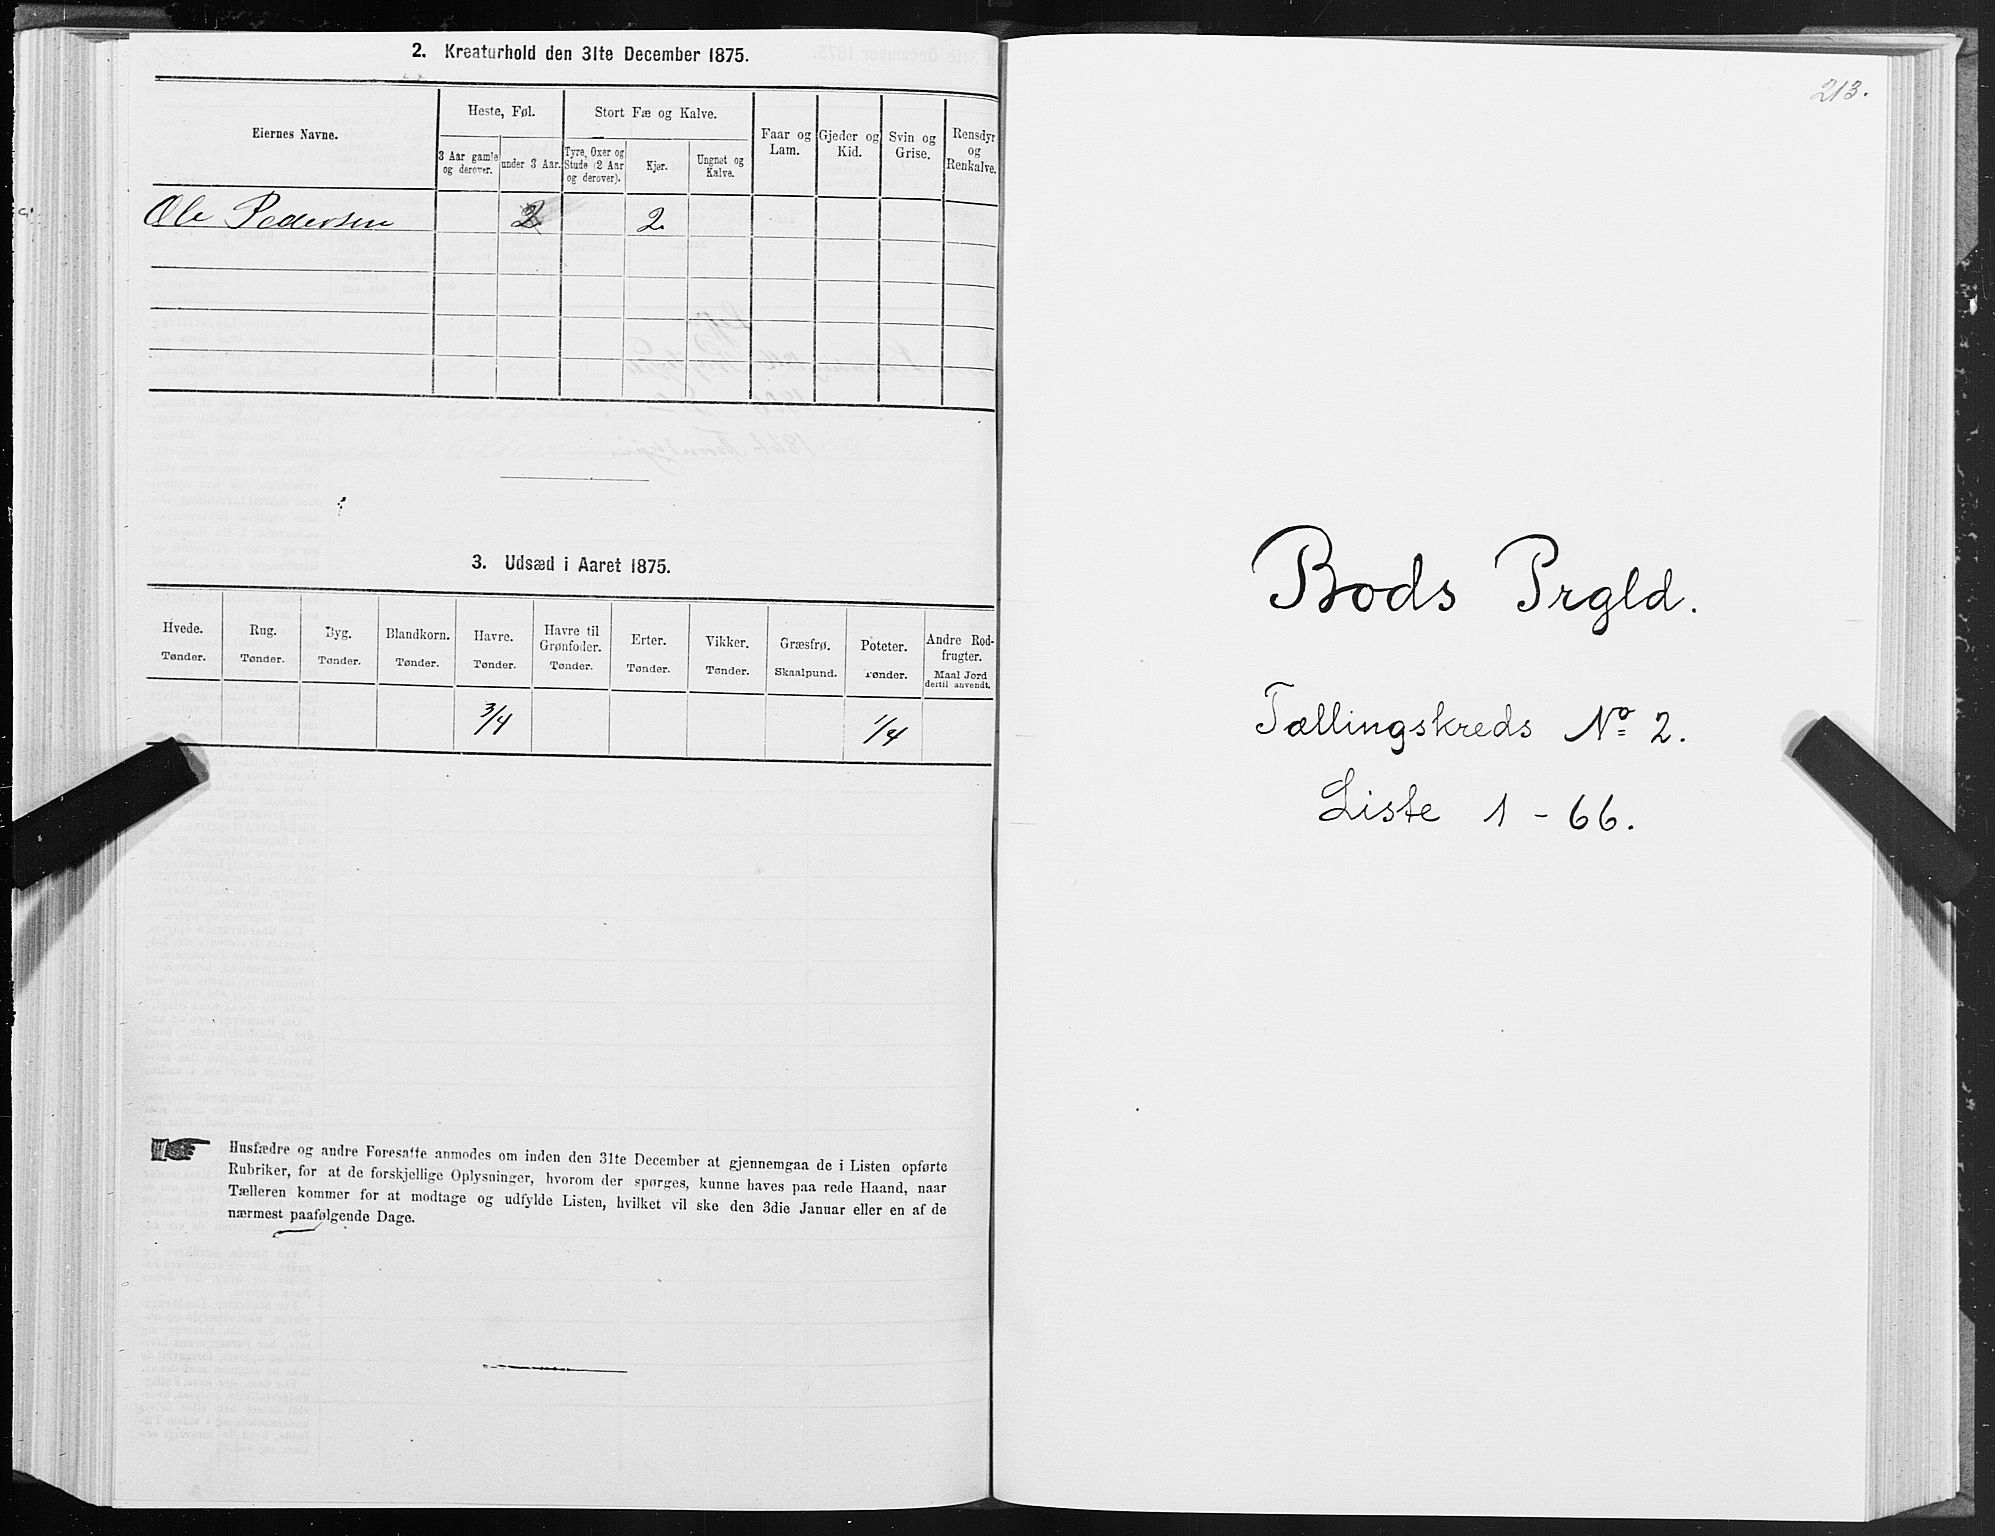 2. Kreaturhold den 31te December 1875.
Eiernes Navne.
Heste, Føl.
Stort Fæ og Kalve.
Faar og Lam.
Gjeder og Kid.
Svin og Grise.
Rensdyr og Renkalve.
3 Aar gamle og derover.
under 3 Aar.
Tyre, Oxer og Stude (2 Aar og derover).
Kjør.
Ungnøt og Kalve.
Ole Pedersen 2 2.
3. Udsæd i Aaret 1875.
Hvede. Rug. Byg. Blandkorn. Havre. Havre til Grønfoder. Erter. Vikker. Græsfrø. Poteter. Andre Rodfrugter.
Tønder. Tønder. Tønder. Tønder. Tønder. Tønder. Tønder. Tønder. Skaalpund. Tønder. Maal Jord dertil anvendt.
3/4 1/4
Husfædre og andre Foresatte anmodes om inden den 31te December at gjennemgaa de i Listen opførte
Rubriker, for at de forskjellige Oplysninger, hvorom der spørges, kunne haves paa rede Haand, naar
Tælleren kommer for at modtage og udfylde Listen, hvilket vil ske den 3die Januar eller en af de
nærmest paafølgende Dage.
213.
Bods Prgld.
Tællingskreds No 2.
Liste 1 - 66.